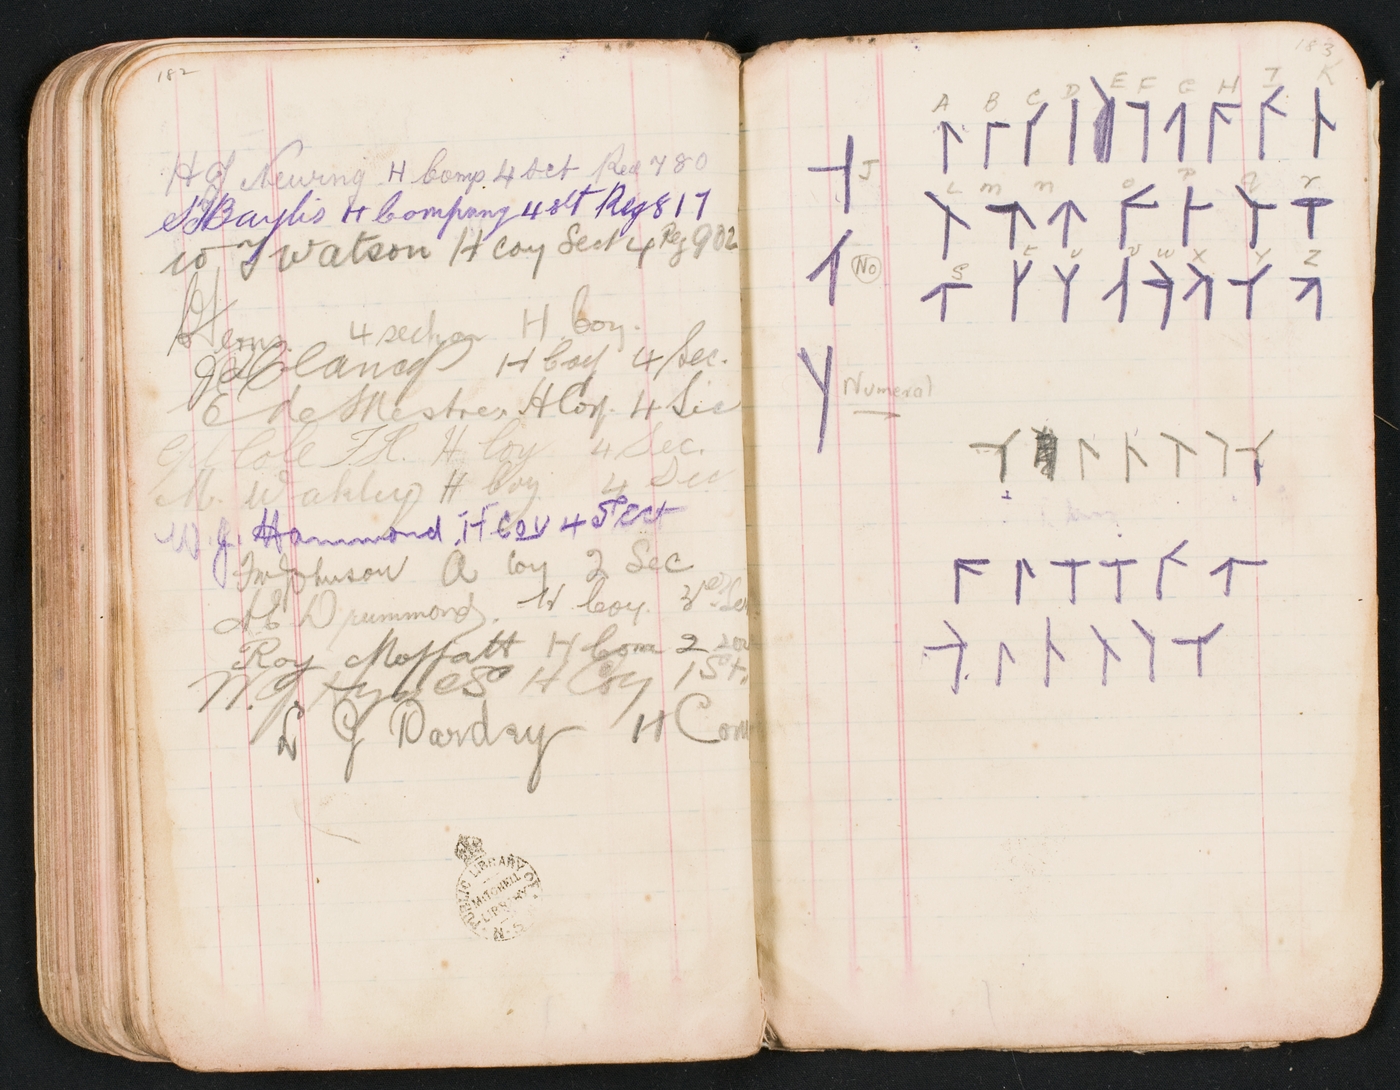 182
H J Newing H Comp 4 Sect Reg 780
Baylis H Company 4 Sct Reg 817
W J Watson H Coy Sect 4 Reg 902
4 section H Coy.
Clancy H Coy 4 Sec.
E de Mestre, H Coy. 4 Sec
Cole F.R. H Coy 4 Sec.
M. Wakley H Coy 4 Sec
W. J. Hammond. H Coy 4 Sect
Johnson A Coy 2 Sec
Drummond. H Coy.
Roy Moffatt H Com 2
W. J. H Coy 1 St.
L J Dardey H Com
PUBLIC LIBRARY OF N.S.
MITCHELL LIBRARY
183
A B C D E F G H I K
J
L m n o p q r
No
S t u v w X Y Z
Numeral